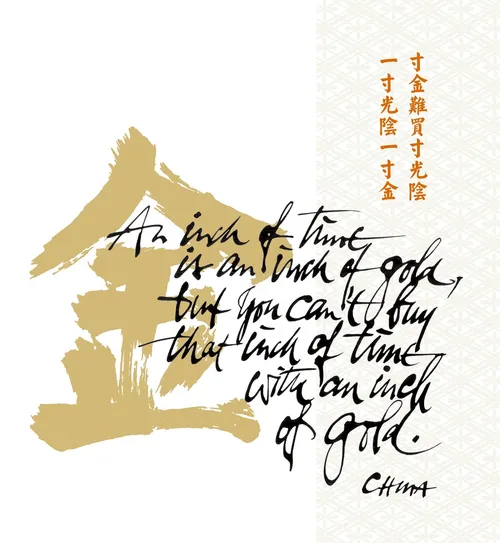 一寸光陰一寸金
寸金難買寸光陰
金
An inch of time
is an inch of gold,
but you can't buy
that inch of time
with an inch
of gold.
CHINA